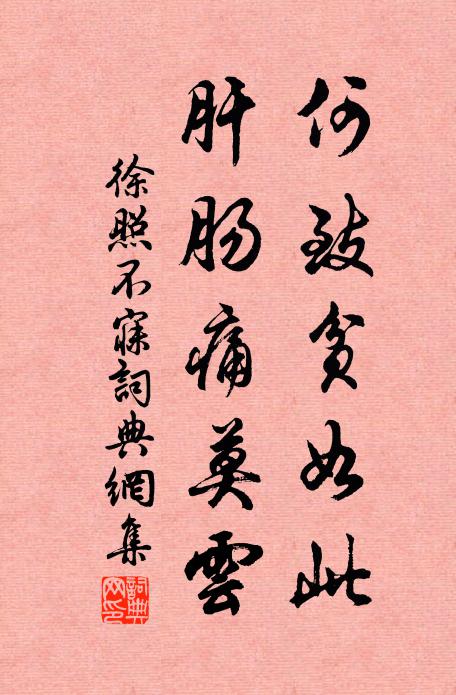 何致貧如此
肝腸痛莫雲
徐照不寐詞典網集
詞典網印